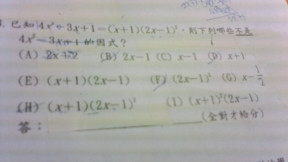 已知 4x³-3x+1=(x+1)(2x-1)²，則下列哪些不是
4x³-3x+1的因式？
(A) 2x-2 (B) 2x-1 (C) x-1 (D) x+1
(E) (x+1)(2x-1) (F) (2x-1)² (G) x-1/2
(H) (x+1)(2x-1)² (I) (x+1)²(2x-1)
答： (全對才給分)